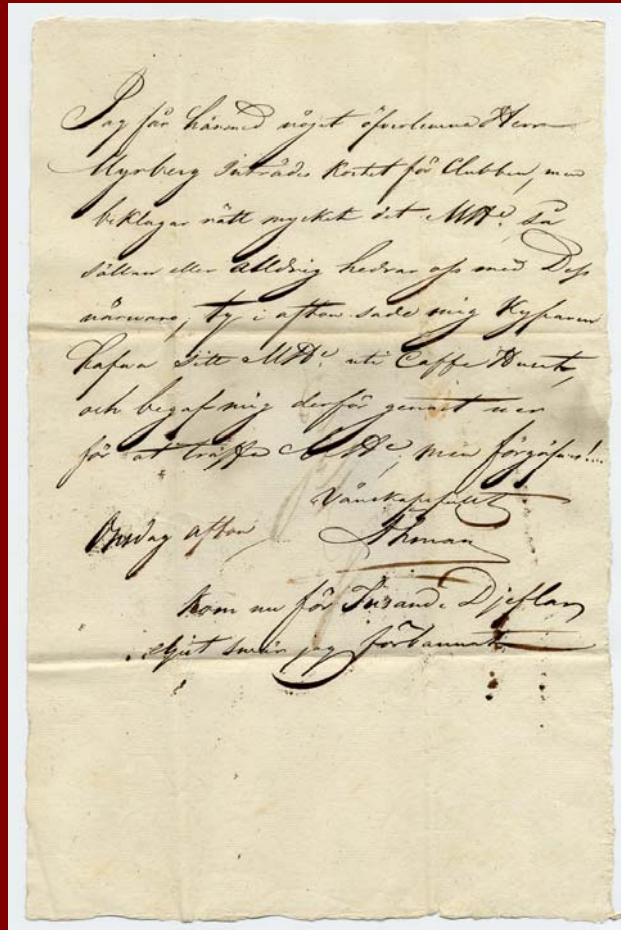 Jag får härmed nöjet öfverlemna Herr
Myrberg Inträdes Kortet för Clubben, men
beklagar rätt mycket det MHe, så
sällan eller Alldrig hedrar oss med Dess
närwaro, ty i afton sade mig Kyparen
hafva sett MHe. uti Caffe Huset,
och begaf mig derför genast ner
för at träffa MHe, men förgäfves!...
Vänskapsfullt
Onsdag afton Åhman
Kom nu för Tusand. Djeflar,
svär jag förbannat